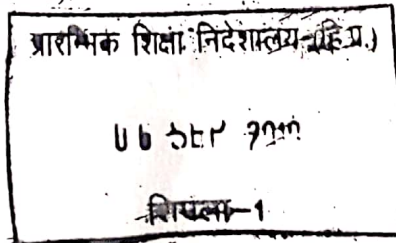 प्रारम्भिक शिक्षा निदेशालय (हि.प्र.)
06 SEP
शिमला-1